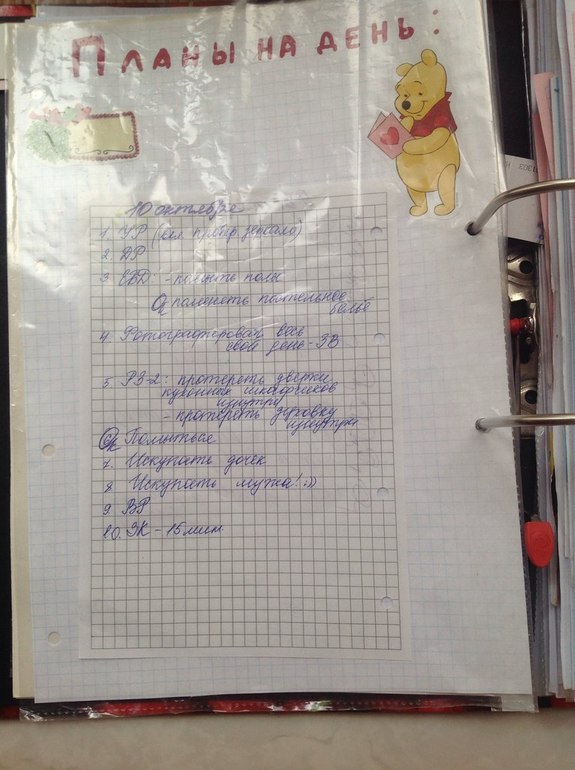 Планы на день:
10 октября
1. УР (осн. пробер зеркало)
2. ДР
3. ЕВД - помыть полы
Ок поменять постельное
бельё
4. Фотографировать весь
свой день - ЗВ
5. РЗ-2: протереть дверки
кухонных шкафчиков
изнутри
протереть духовку
изнутри
Ок Помыться
7. Искупать дочек
8. Искупать мужа! :))
9. ВР
10. ЗК - 15 мин.